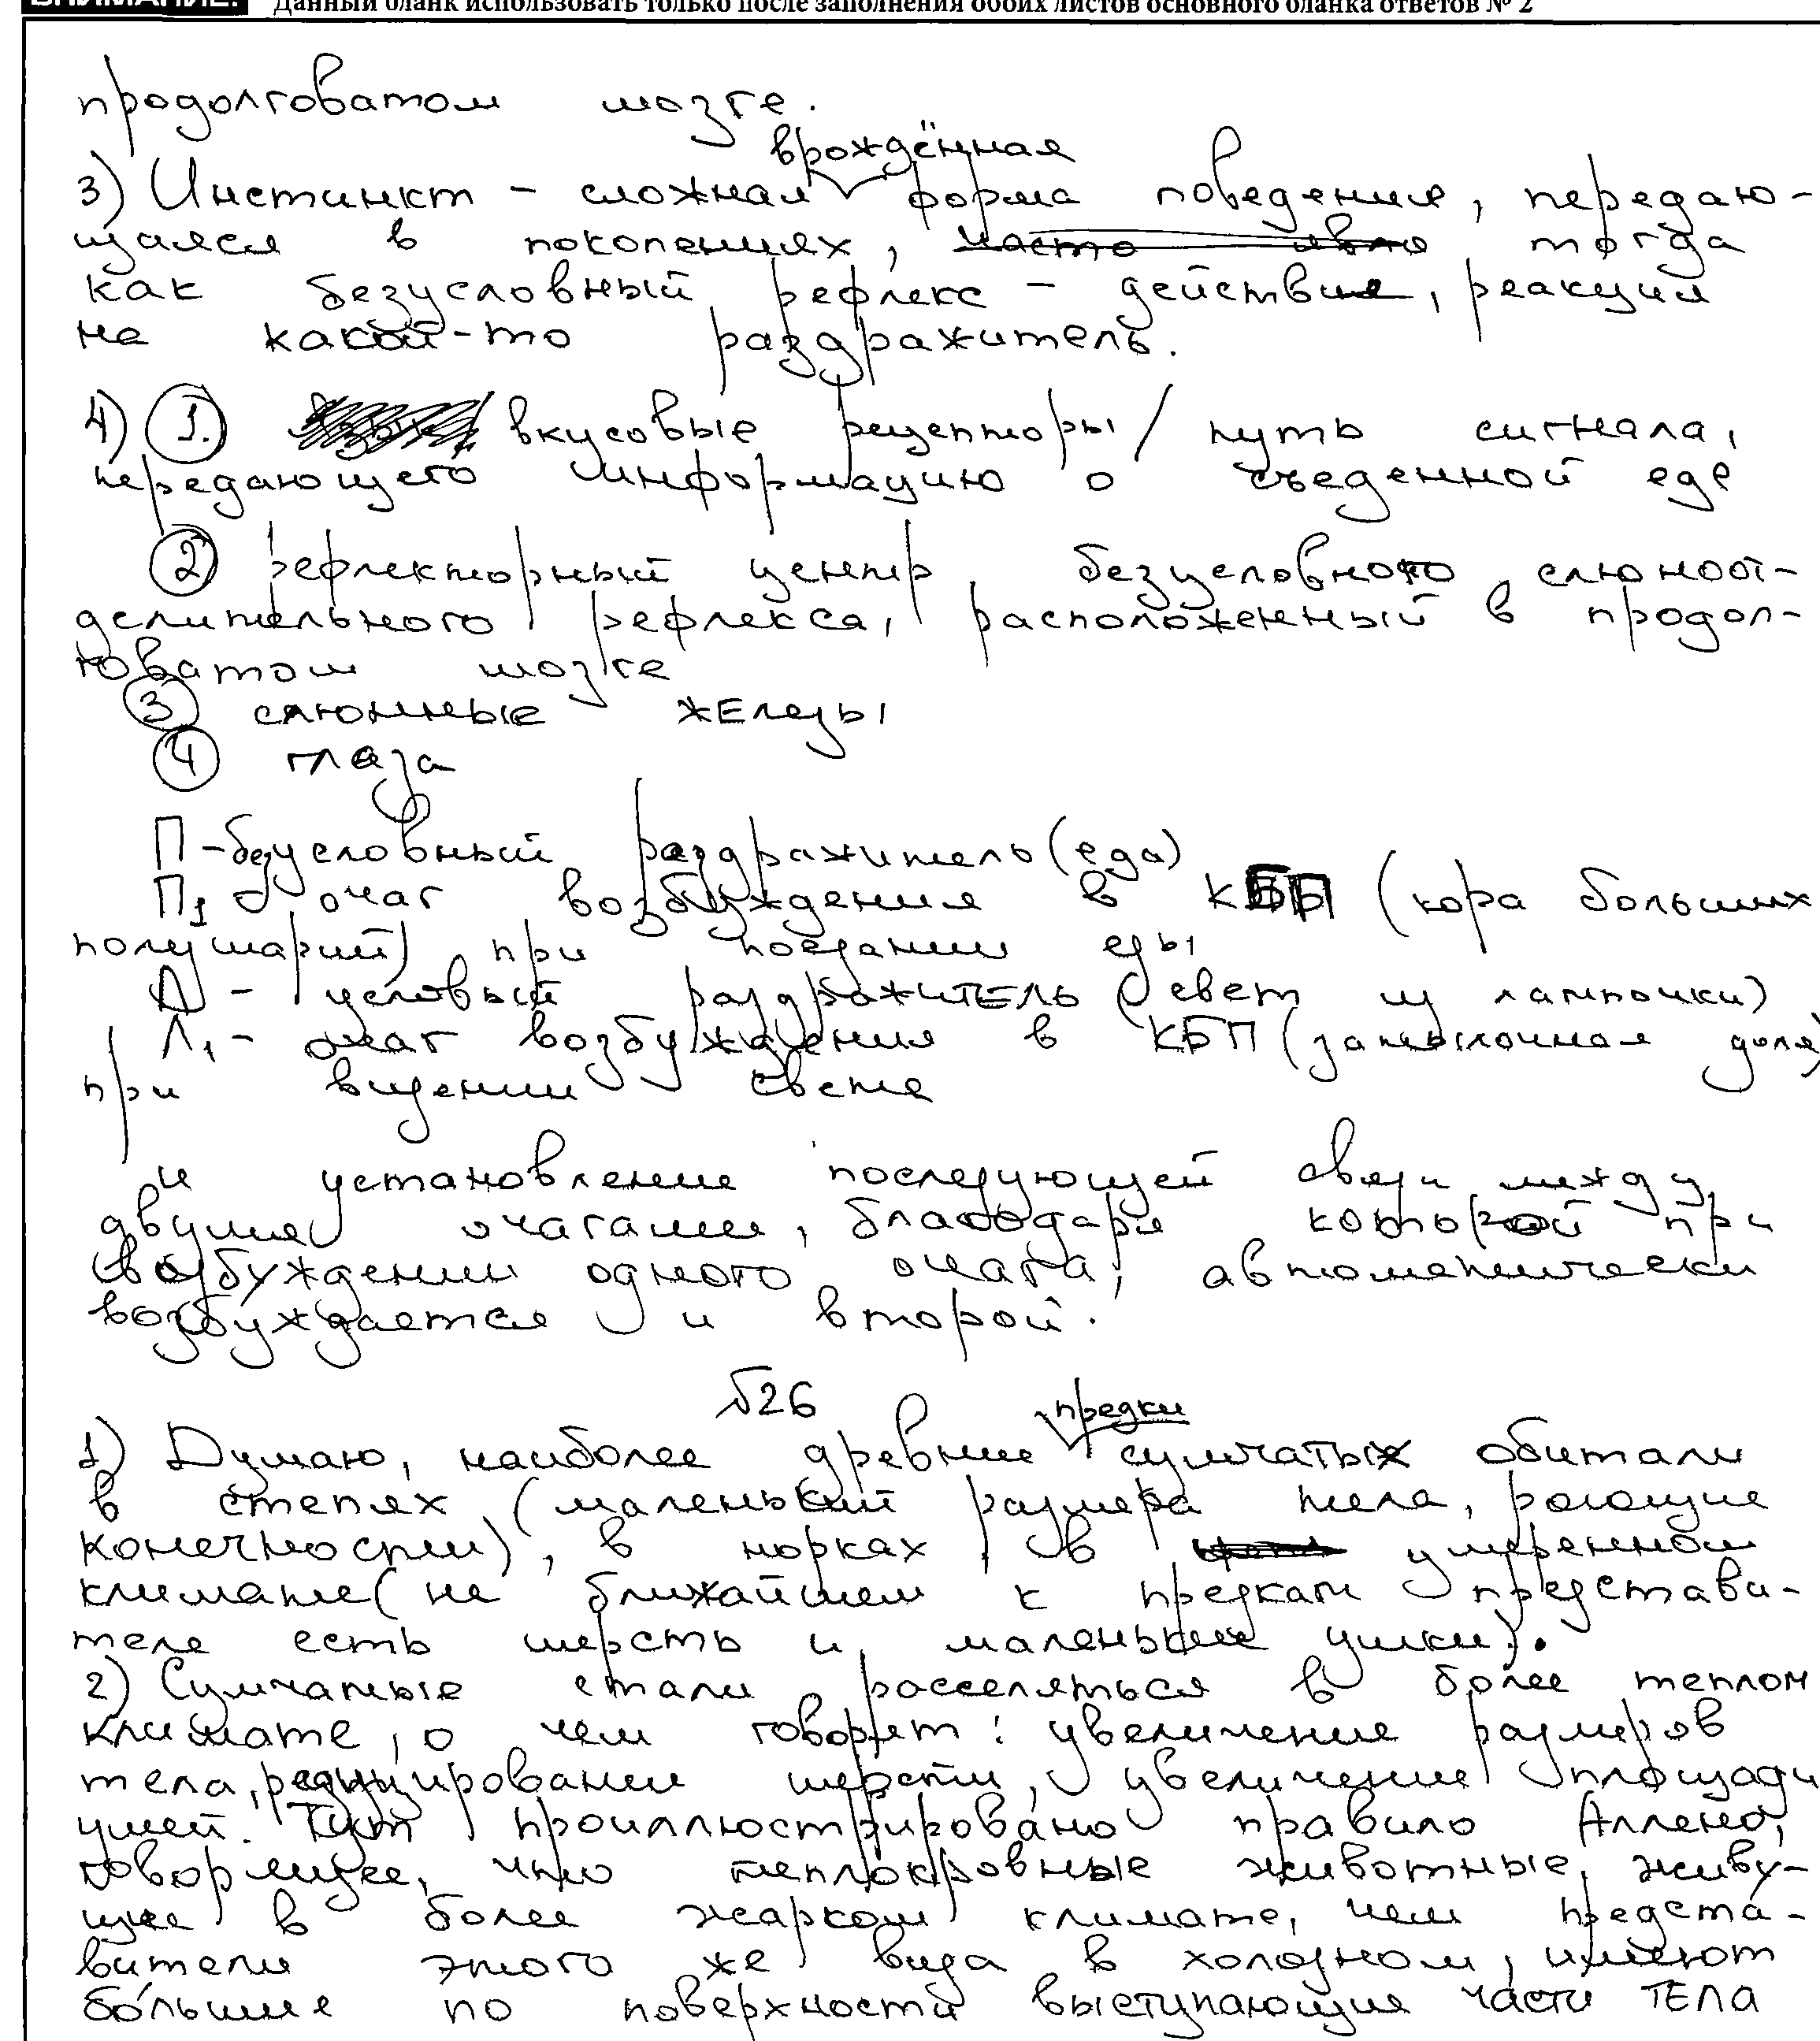 ВНИМАНИЕ! Данный бланк использовать только после заполнения обоих листов основного бланка ответов № 2
продолговатом мозге.
врождённая
3) Инстинкт - сложная форма поведения, передаю-
щаяся в поколениях, тогда
как безусловный рефлекс - действие, реакция
на какой-то раздражитель.
4) 1. вкусовые рецепторы / путь сигнала,
передающего информацию о съеденной еде
2 рефлекторный центр безусловного слюноот-
делительного рефлекса, расположенный в продол-
говатом мозге
3 слюнные железы
4 глаза
П - безусловный раздражитель (еда)
П1 - очаг возбуждения в КБП (кора больших
полушарий) при поедании еды
Л - условый раздражитель (свет из лампочки)
Л1 - очаг возбуждения в КБП (затылочная доля)
при видении света
и установление последующей связи между
двумя очагами, благодаря которой при
возбуждении одного очага, автоматически
возбуждается и второй.
№26
предки
1) Думаю, наиболее древние сумчатых обитали
в степях (маленький размера тела, роющие
конечности), в норках, в умеренном
климате (на ближайшем к предкам представи-
теле есть шерсть и маленькие ушки).
2) Сумчатые стали расселяться в более теплом
климате, о чем говорят: увеличение размеров
тела, редуцировании шерсти, увеличение площади
ушей. Тут проиллюстрировано правило Аллена,
говорящее, что теплокровные животные, живу-
щие в более жарком климате, чем предста-
вители этого же вида в холодном, имеют
бо́льшие по поверхности выступающие части тела